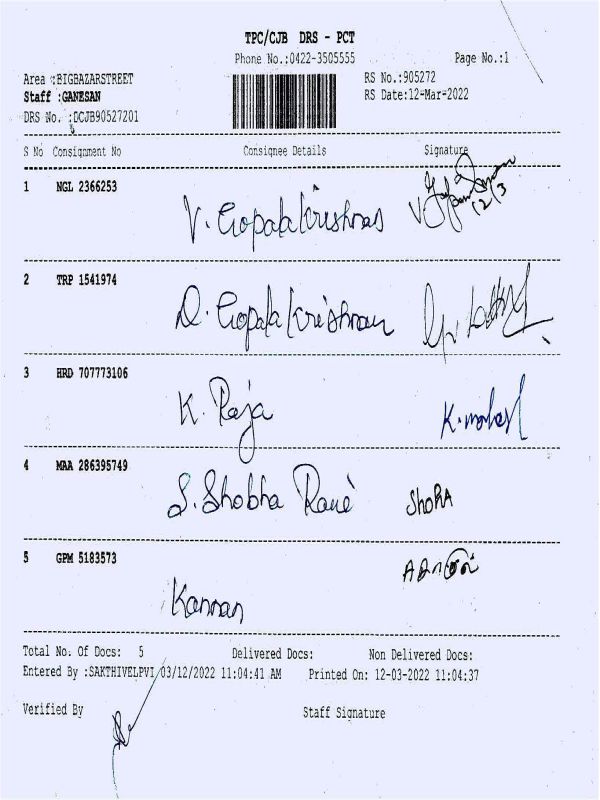 TPC/CJB DRS - PCT
Phone No.:0422-3505555 Page No.:1
Area :BIGBAZARSTREET RS No.:905272
Staff :GANESAN RS Date:12-Mar-2022
DRS No. :DCJB90527201
S No Consignment No Consignee Details Signature
1 NGL 2366253 V. Gopala Krishnan 12/3
2 TRP 1541974 D. Gopala Krishnan
3 HRD 707773106 K. Raja K.
4 MAA 286395749 S. Shobha Rani ShoRA
5 GPM 5183573 Kannan
Total No. Of Docs: 5 Delivered Docs: Non Delivered Docs:
Entered By :SAKTHIVELPVI 03/12/2022 11:04:41 AM Printed On: 12-03-2022 11:04:37
Verified By Staff Signature